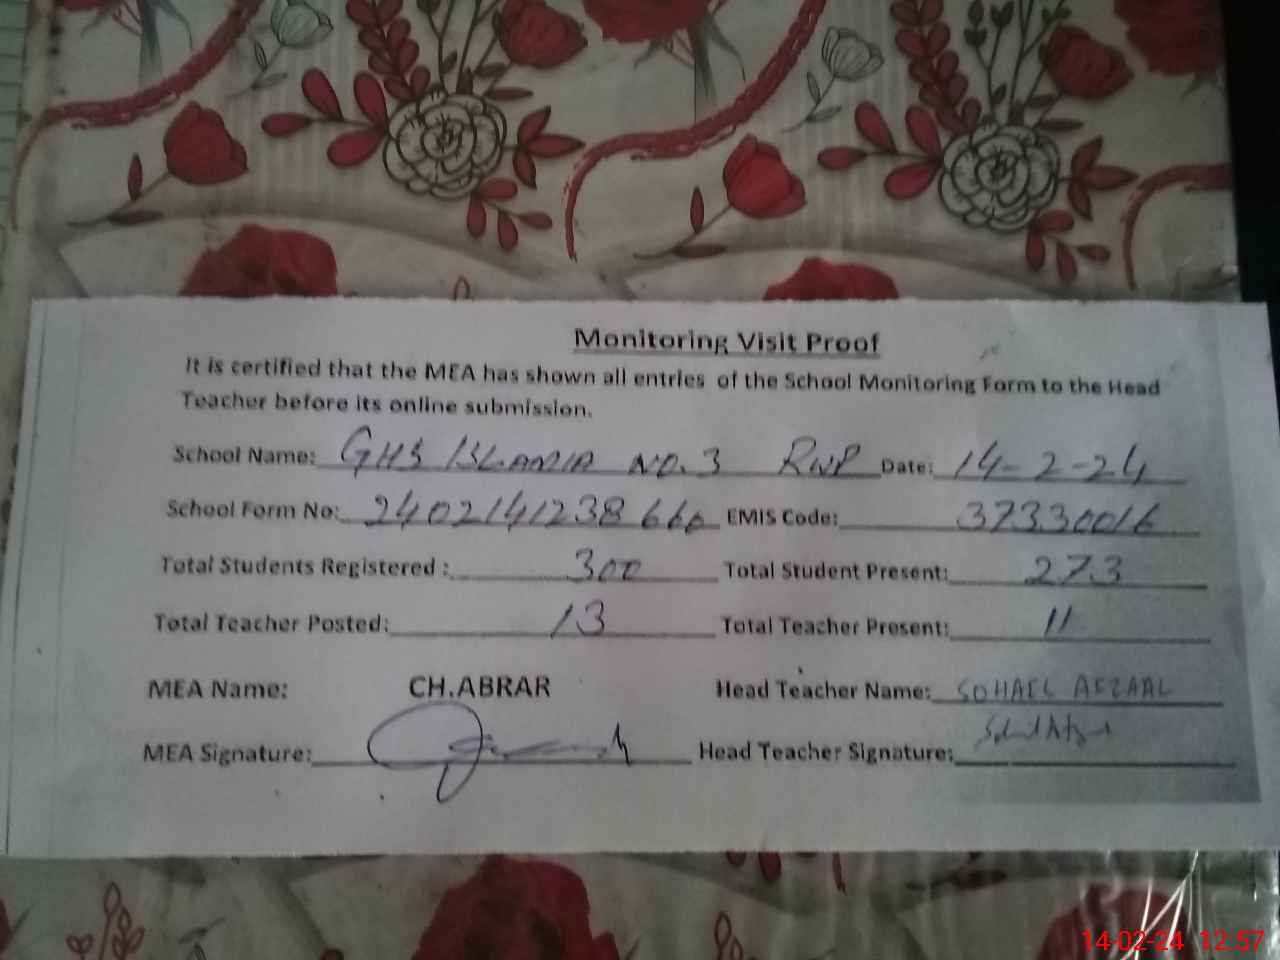 Monitoring Visit Proof
It is certified that the MEA has shown all entries of the School Monitoring Form to the Head
Teacher before its online submission.
School Name: GHS ISLAMIA NO.3 RWP Date: 14-2-24
School Form No: 2402141238666 EMIS Code: 37330016
Total Students Registered : 300 Total Student Present: 273
Total Teacher Posted: 13 Total Teacher Present: 11
MEA Name: CH.ABRAR Head Teacher Name: SOHAEL AFZAAL
MEA Signature: Head Teacher Signature:
14-02-24 12:57